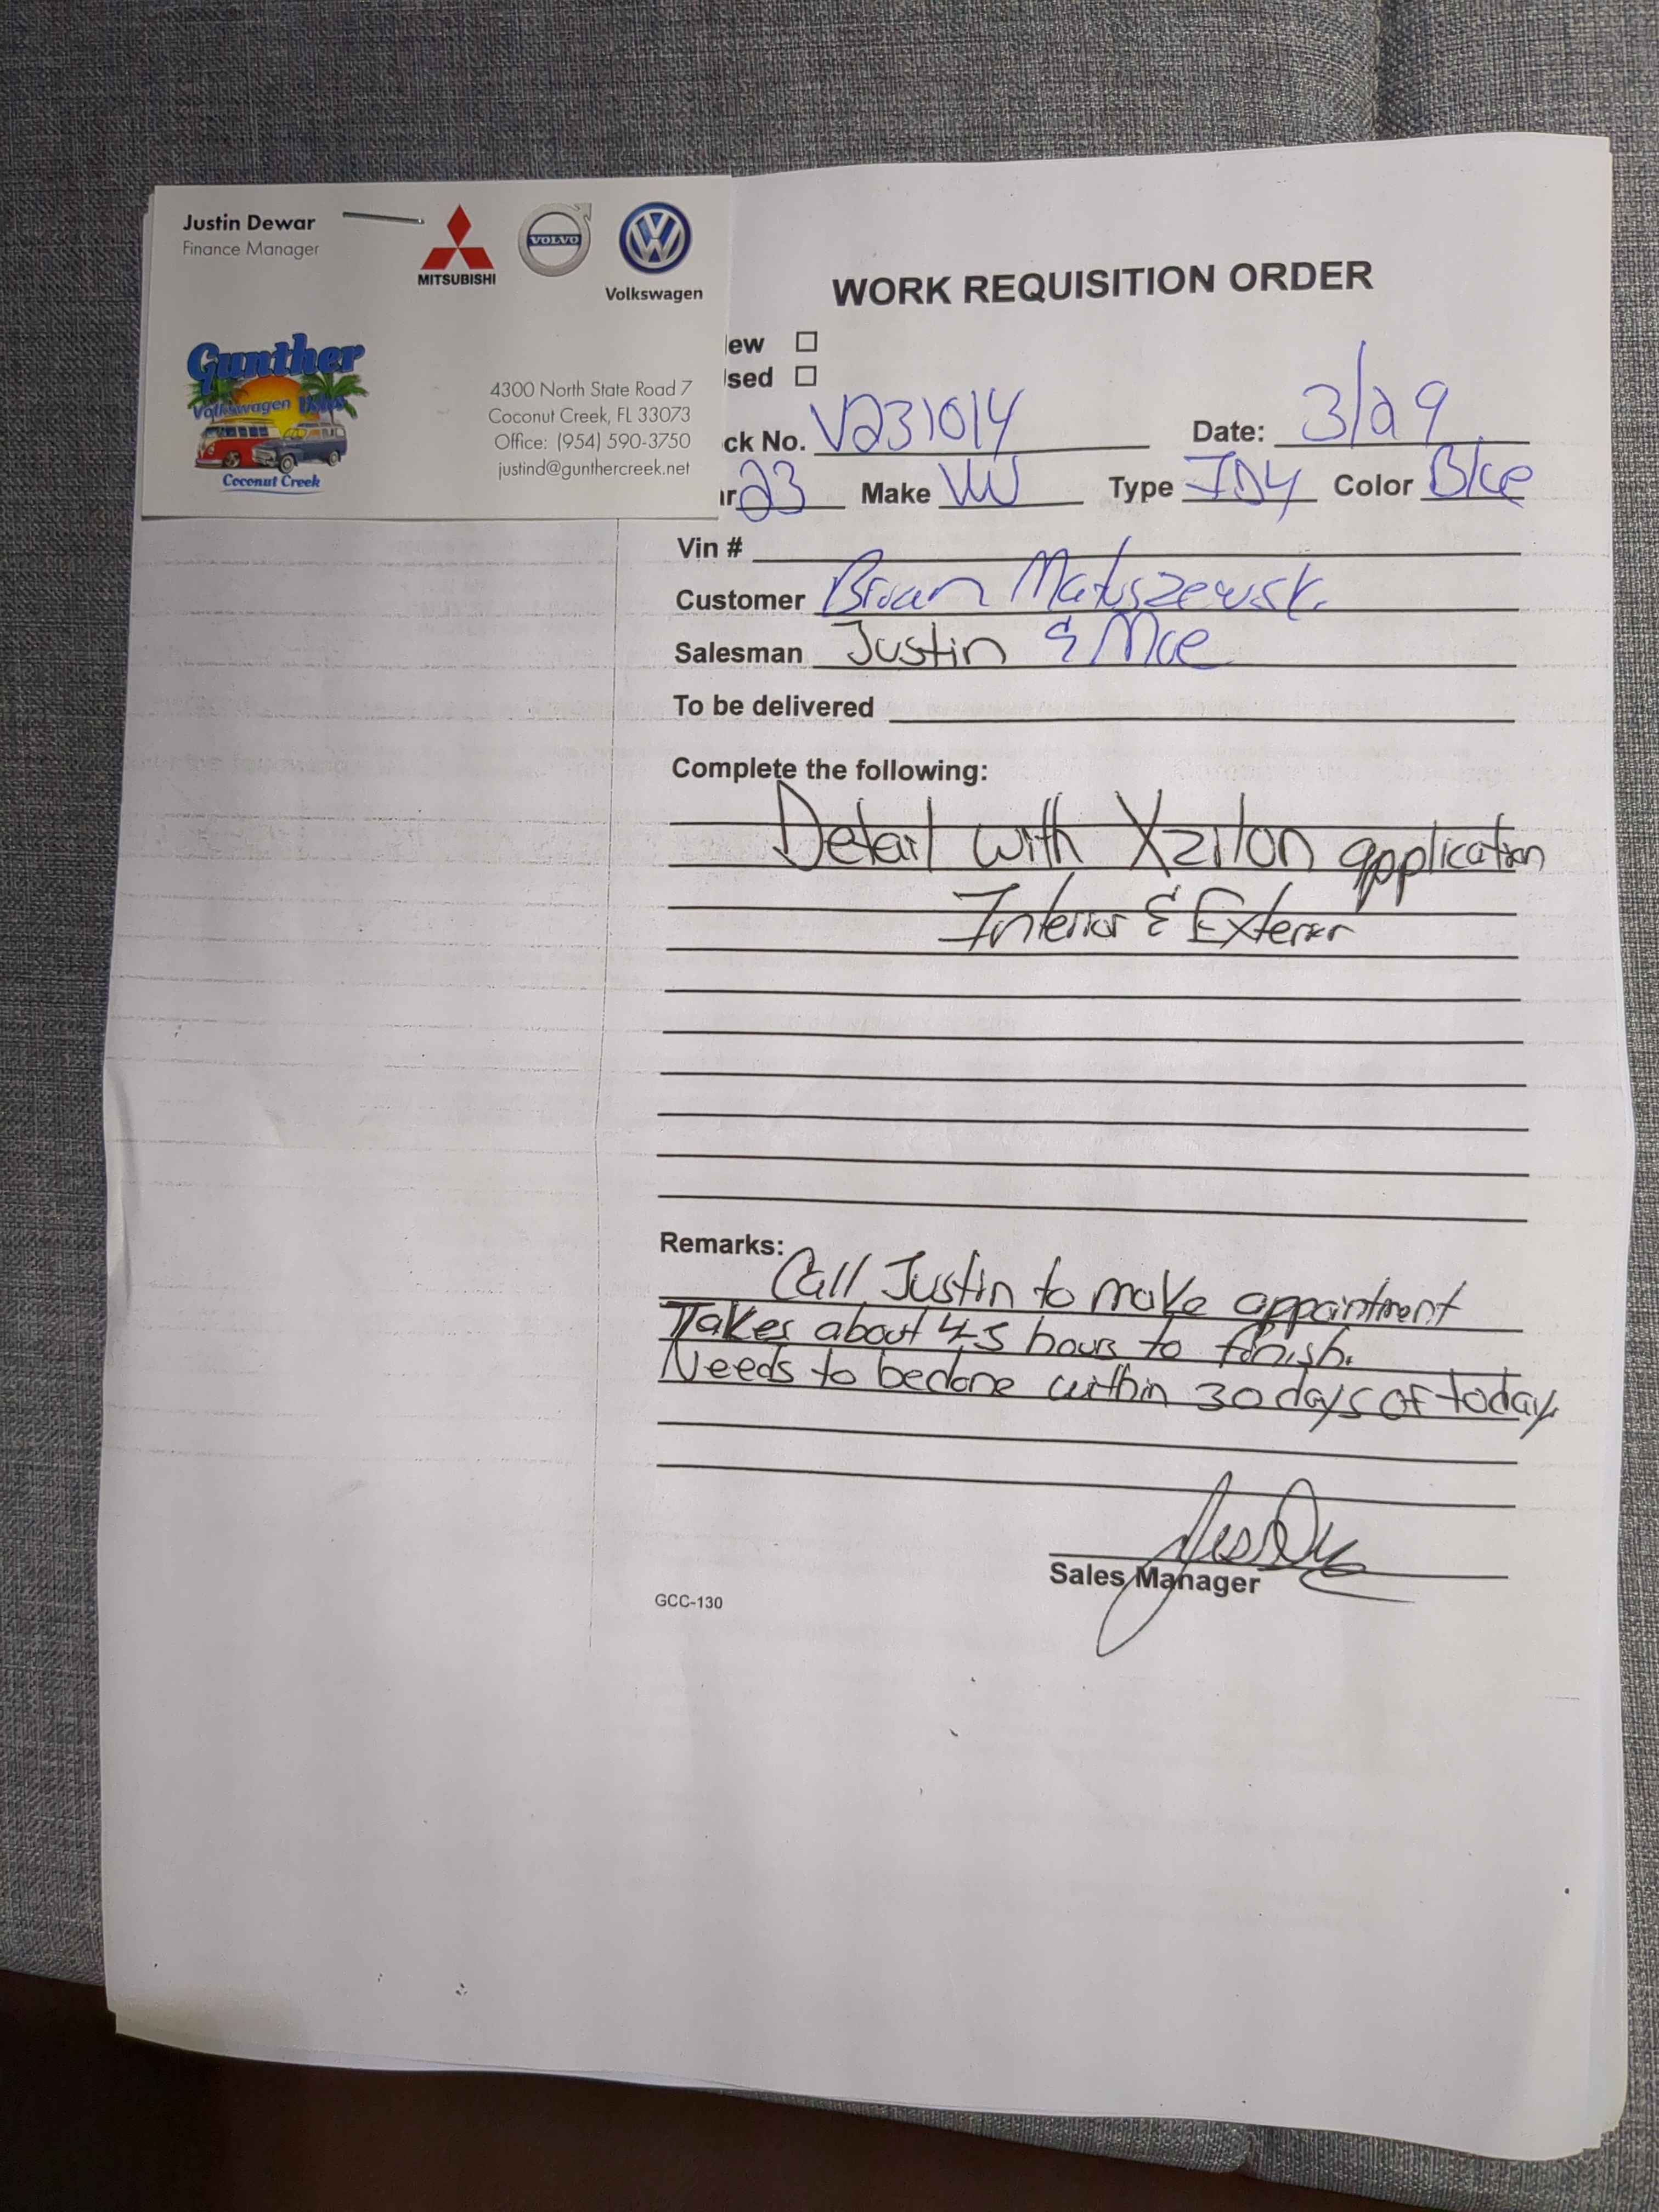 Justin Dewar
Finance Manager
MITSUBISHI
VOLVO
Volkswagen
Gunther
Volkswagen Volvo
Coconut Creek
4300 North State Road 7
Coconut Creek, FL 33073
Office: (954) 590-3750
justind@gunthercreek.net
WORK REQUISITION ORDER
ew
sed
ck No. V231014 Date: 3/29
r 23 Make VW Type ID4 Color Blue
Vin #
Customer Matuszewski
Salesman Justin & Moe
To be delivered
Complete the following:
Detail with Xzilon application
Interior & Exterior
Remarks:
Call Justin to make appointment
Takes about 4-5 hours to finish.
Needs to be done within 30 days of today
Sales Manager
GCC-130